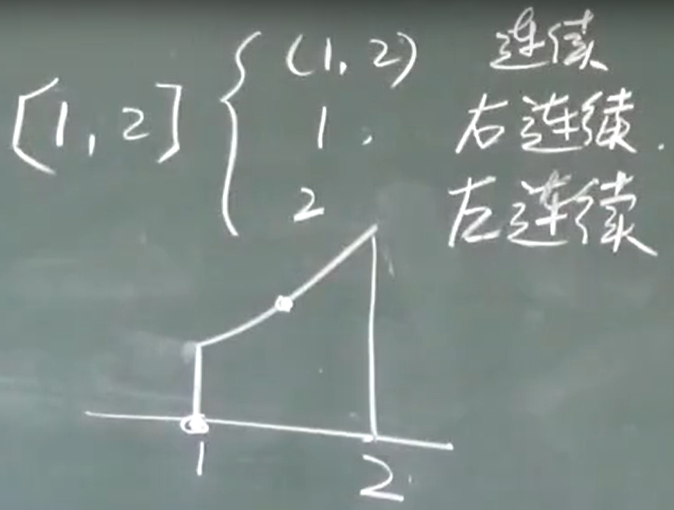 (1,2) 连续
[1,2] { 1, 右连续.
2 左连续
1 2